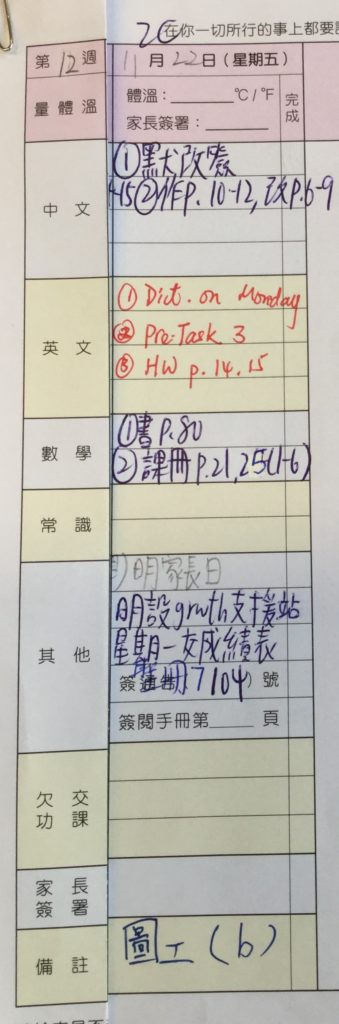 2C
在你一切所行的事上都要
第12週 11月22日(星期五)
量體溫 體溫：______℃/℉ 完成
家長簽署：______
中文 ①默改
②作p.10-12,改p.6-9
英文 ① Dict. on Monday
② Pre-Task 3
③ HW p.14.15
數學 ①書P.80
②課冊P.21,25(1-6)
常識
其他 明家長日
明設 支援站
星期一交成績表
簽 104) 號
簽閱手冊第____頁
欠交功課
家長簽署
備註 圖工(b)